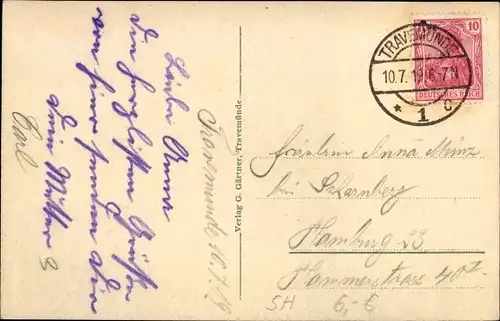 Liebe Anna
die herzlichsten Grüße
von hier senden Dir
Deine Mutter &
Carl
Travemünde 10.7.19
Verlag G. Gärtner, Travemünde
10
DEUTSCHES REICH
TRAVEMÜNDE
10.7.19 6-7N
* 1 c
Fräulein Anna Münz
bei Scharnberg
Hamburg 23
Hammerstrasse 40 II
SH 6,-€